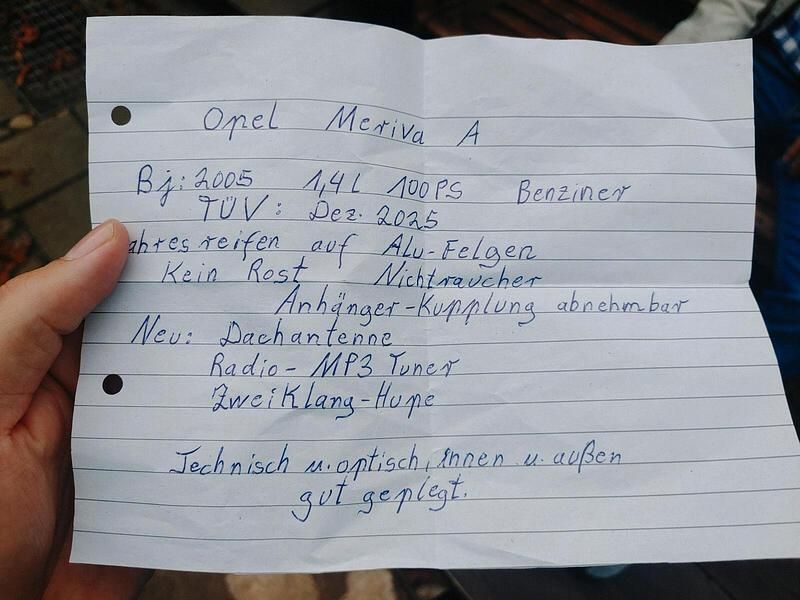 Opel Meriva A
Bj: 2005 1,4L 100PS Benziner
TÜV: Dez. 2025
ahresreifen auf Alu-Felgen
Kein Rost Nichtraucher
Anhänger-Kupplung abnehmbar
Neu: Dachantenne
Radio- MP3 Tuner
ZweiKlang-Hupe
Technisch u. optisch, innen u. außen
gut geplegt.